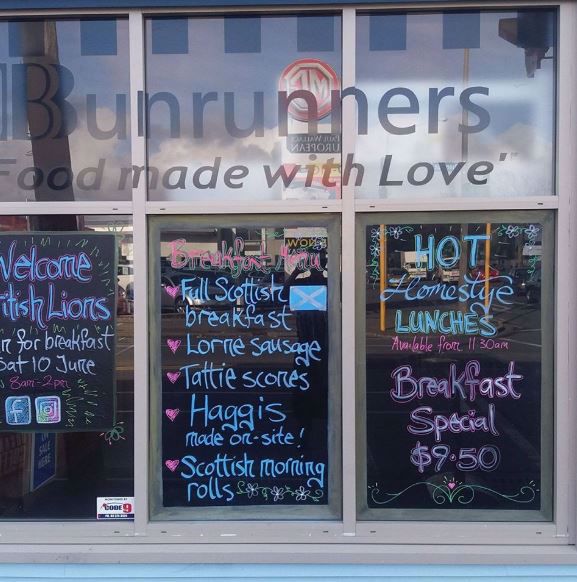 Bunrunners
Food made with Love"
MG
PAUL WALLACE
EUROPEAN
Welcome
itish Lions
n for breakfast
Sat 10 June
8am-2pm
f
Breakfast Menu
Full Scottish
breakfast
Lorne sausage
Tattie scones
Haggis
made on-site!
Scottish morning
rolls
HOT
Homestyle
LUNCHES
Available from 11.30am
Breakfast
Special
$9.50
CODE 9